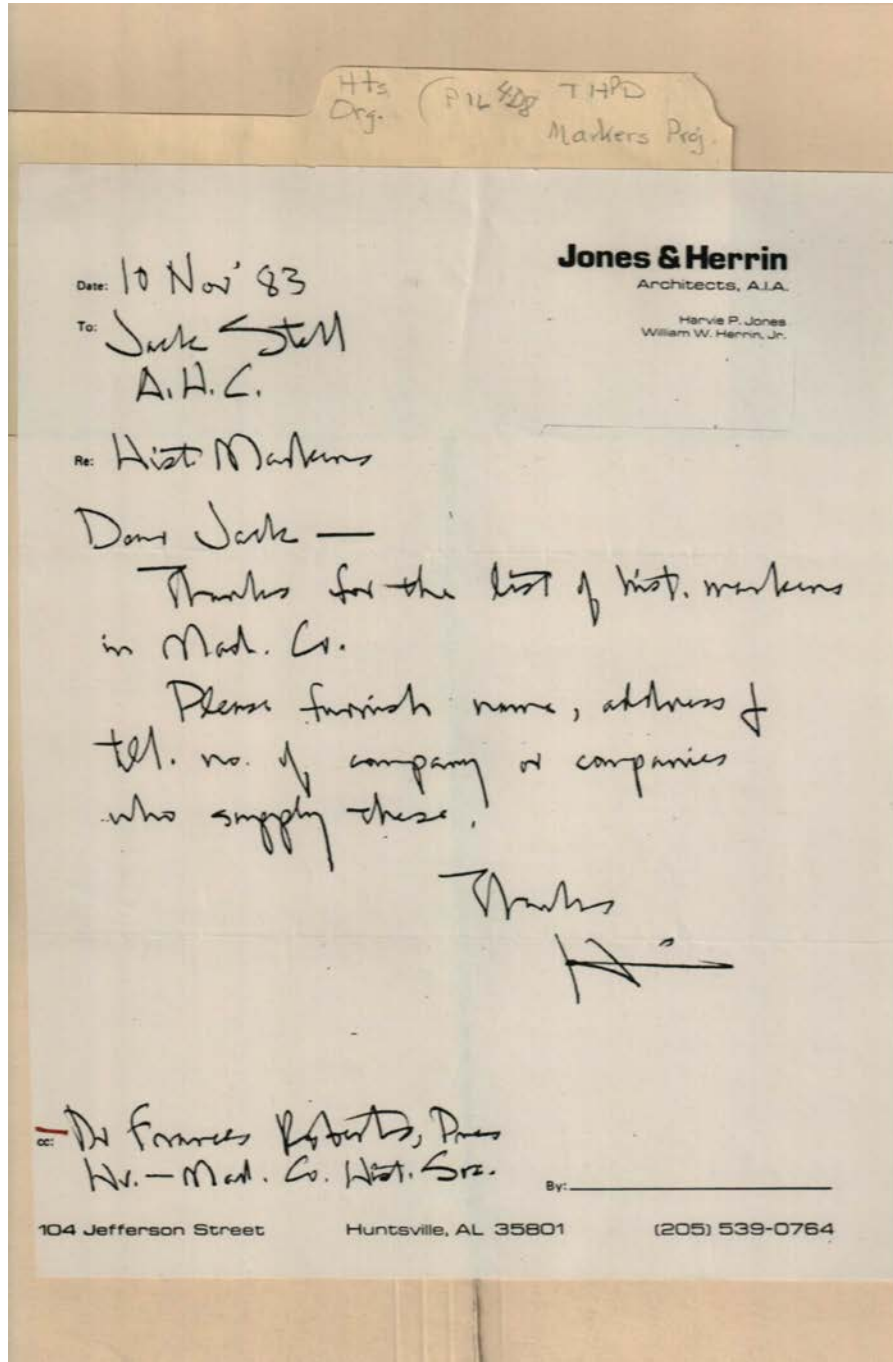 Hts. THPD
Org. Markers Proj.
Jones & Herrin
Architects, A.I.A.
Harvie P. Jones
William W. Herrin, Jr.
Date: 10 Nov' 83
To: Jack Stell
A.H.C.
Re: Hist Markers
Dear Jack —
Thanks for the list of hist. markers
in Mad. Co.
Please furnish name, address &
tel. no. of company or companies
who supply these.
Thanks
cc: Dr Frances Roberts, Pres
Hv. - Mad. Co. Hist. Soc.
By:
104 Jefferson Street Huntsville, AL 35801 (205) 539-0764